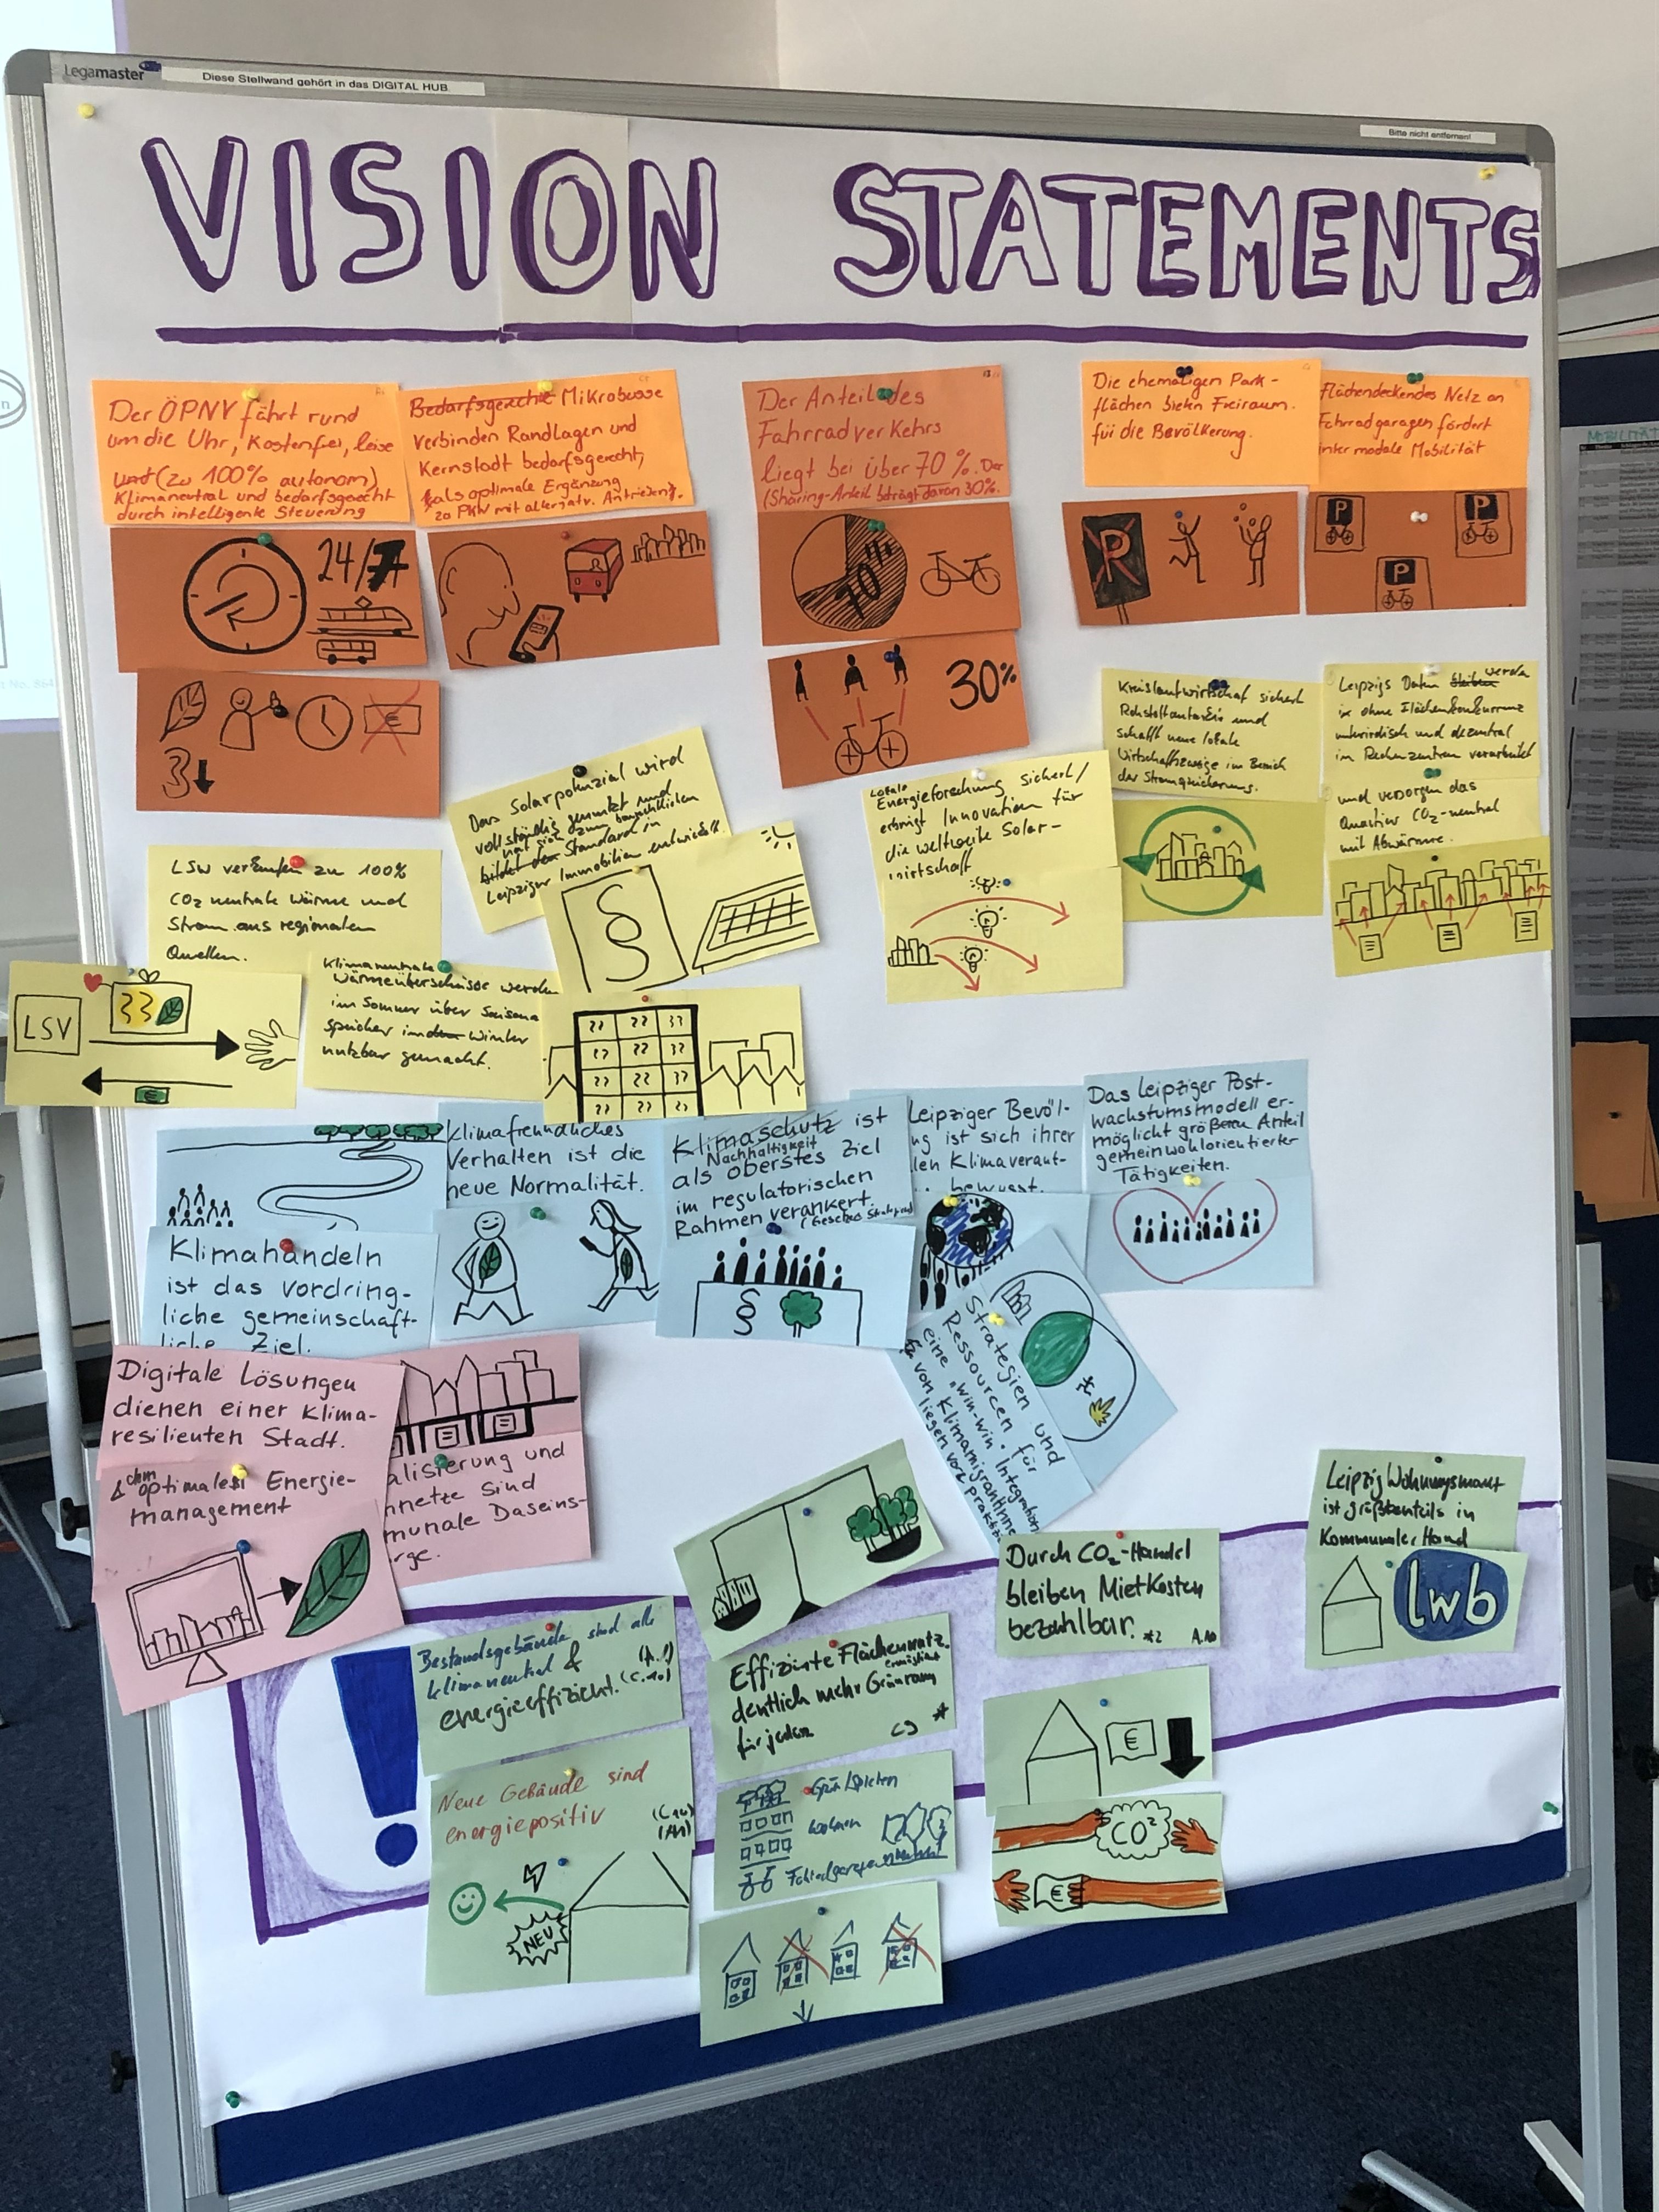 Legamaster
Diese Stellwand gehört in das DIGITAL HUB.
Bitte nicht entfernen!
VISION STATEMENTS
Der ÖPNV fährt rund
um die Uhr, kostenfrei, leise
und (zu 100% autonom)
Klimaneutral und bedarfsgerecht
durch intelligente Steuerung
24/7
Bedarfsgerechte Mikrobusse
verbinden Randlagen und
Kernstadt bedarfsgerecht,
als optimale Ergänzung
zu PKW mit alternativ. Antrieben.
Der Anteil des
Fahrradverkehrs
liegt bei über 70%. Der
(Sharing-Anteil beträgt davon 30%.
70%
30%
Die ehemaligen Park-
flächen bieten Freiraum
für die Bevölkerung.
P
Flächendeckendes Netz an
Fahrradgaragen fördert
intermodale Mobilität
P
P
P
€
LSW verkaufen zu 100%
CO2 neutrale Wärme und
Strom aus regionalen
Quellen.
LSV
€
Das Solarpotenzial wird
vollständig genutzt und
hat sich zum baurechtlichen
bildet den Standard in
Leipziger Immobilien entwickelt.
§
Klimaneutrale
Wärmeüberschüsse werden
im Sommer über Saisonal
speicher im dem Winter
nutzbar gemacht.
Lokale
Energieforschung sichert/
erbringt Innovation für
die weltweite Solar-
wirtschaft
Kreislaufwirtschaft sichert
Rohstoffautarkie und
schafft neue lokale
Wirtschaftszweige im Bereich
der Stromspeicherung.
Leipzigs Daten bleiben werden
ohne Flächenkonkurrenz
unterirdisch und dezentral
im Rechenzentren verarbeitet
und versorgen das
Quartier CO2-neutral
mit Abwärme.
Klimahandeln
ist das vordring-
liche gemeinschaft-
liche Ziel.
Klimafreundliches
Verhalten ist die
neue Normalität.
Klimaschutz ist
Nachhaltigkeit
als oberstes Ziel
im regulatorischen
Rahmen verankert.
§
Leipziger Bevöl-
ng ist sich ihrer
len Klimaverant-
bewusst.
Das Leipziger Post-
wachstumsmodell er-
möglicht größeren Anteil
gemeinwohlorientierter
Tätigkeiten.
Strategien und
Ressourcen für
eine "win-win" Integration
von KlimamigrantInnen
liegen vor
Digitale Lösungen
dienen einer klima-
resilienten Stadt.
& dem optimalen Energie-
management
alisierung und
nnetze sind
munale Daseins-
rge.
Bestandsgebäude sind alle
klimaneutral &
energieeffizient.
Neue Gebäude sind
energiepositiv
NEU
Effiziente Flächennutz.
ermöglicht
deutlich mehr Grünraum
für jeden
C9 *
Grün/Spielen
Wohnen
Durch CO2-Handel
bleiben Mietkosten
bezahlbar. *2 A.10
€
CO2
€
Leipzig Wohnungsmarkt
ist größtenteils in
Kommunaler Hand
lwb
!